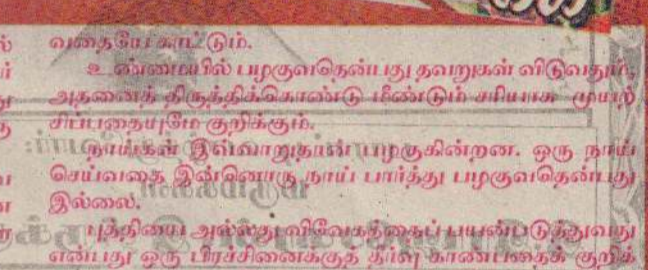 வதையே காட்டும்.
உண்மையில் பழகுவதென்பது தவறுகள் விடுவதும்,
அதனைத் திருத்திக்கொண்டு மீண்டும் சரியாக முயற்
சிப்பதையுமே குறிக்கும்.
நாய்கள் இவ்வாறுதான் பழகுகின்றன. ஒரு நாய்
செய்வதை இன்னொரு நாய் பார்த்து பழகுவதென்பது
இல்லை.
புத்தியை அல்லது விவேகத்தைப் பயன்படுத்துவது
என்பது ஒரு பிரச்சினைக்குத் தீர்வு காண்பதைக் குறிக்